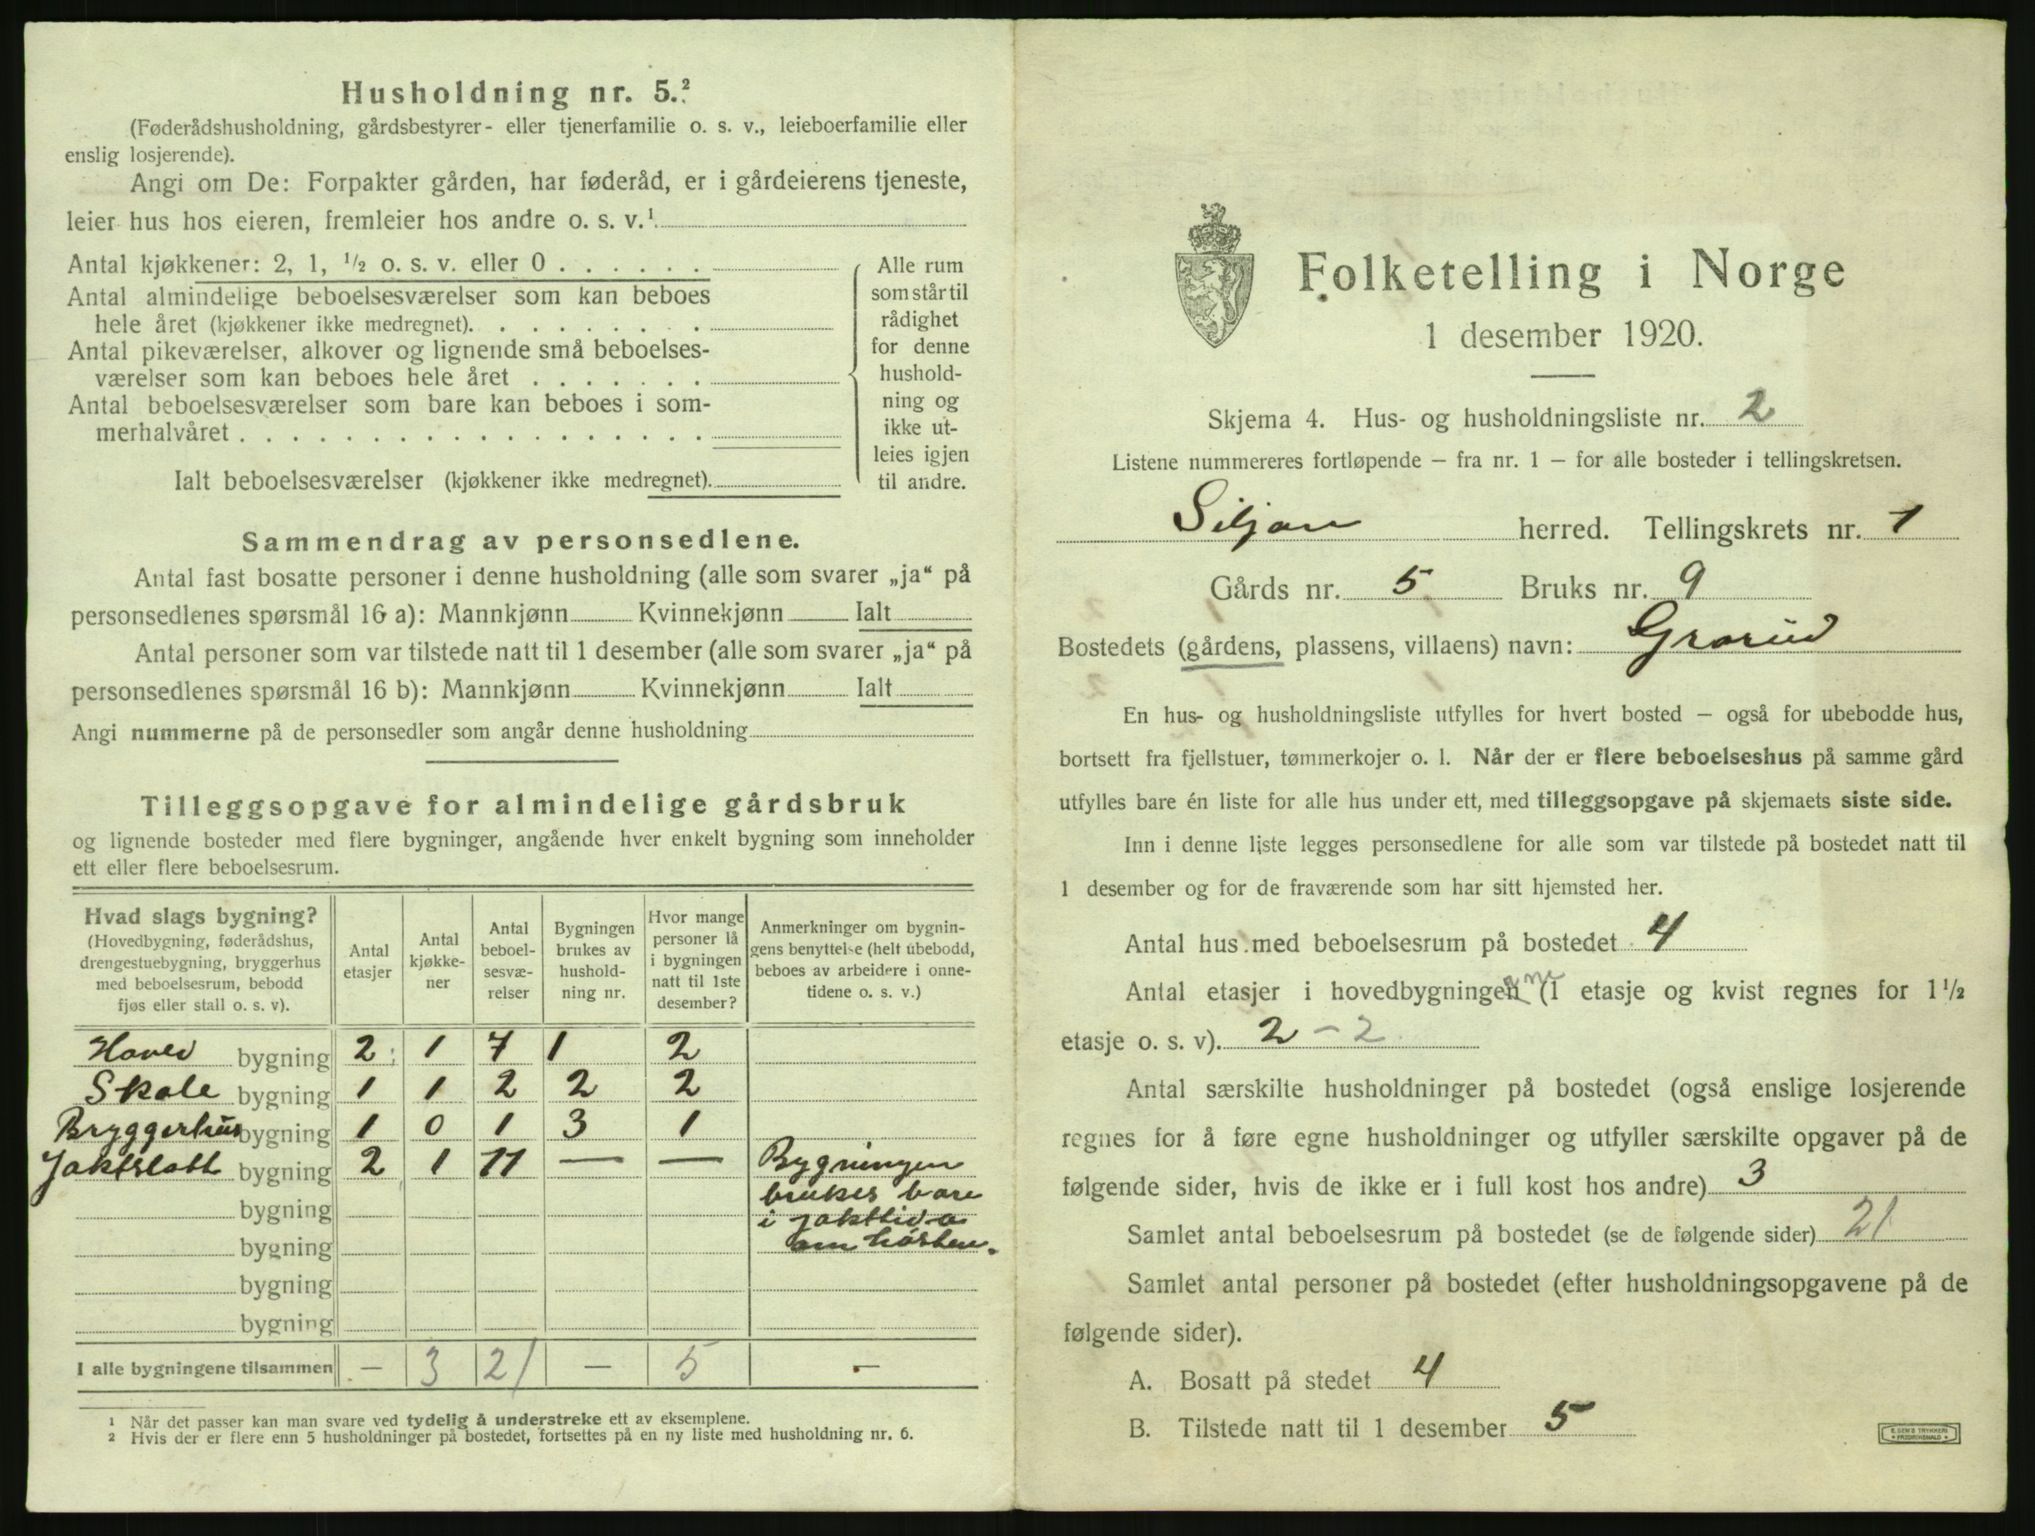 Husholdning nr. 5.²
(Føderådshusholdning, gårdsbestyrer- eller tjenerfamilie o. s. v., leieboerfamilie eller
enslig losjerende).
Angi om De: Forpakter gården, har føderåd, er i gårdeierens tjeneste,
leier hus hos eieren, fremleier hos andre o. s. v.¹
Antal kjøkkener: 2, 1, ½ o. s. v. eller 0 . . . . . .
Antal almindelige beboelsesværelser som kan beboes
hele året (kjøkkener ikke medregnet). . . . . . . . .
Antal pikeværelser, alkover og lignende små beboelses-
værelser som kan beboes hele året . . . . . . .
Antal beboelsesværelser som bare kan beboes i som-
merhalvåret . . . . . . . . . . . . . . . . . .
Ialt beboelsesværelser (kjøkkener ikke medregnet).
Alle rum
som står til
rådighet
for denne
hushold-
ning og
ikke ut-
leies igjen
til andre.
Sammendrag av personsedlene.
Antal fast bosatte personer i denne husholdning (alle som svarer „ja“ på
personsedlenes spørsmål 16 a): Mannkjønn Kvinnekjønn Ialt
Antal personer som var tilstede natt til 1 desember (alle som svarer „ja“ på
personsedlenes spørsmål 16 b): Mannkjønn Kvinnekjønn Ialt
Angi nummerne på de personsedler som angår denne husholdning
Tilleggsopgave for almindelige gårdsbruk
og lignende bosteder med flere bygninger, angående hver enkelt bygning som inneholder
ett eller flere beboelsesrum.
Hvad slags bygning?
(Hovedbygning, føderådshus,
drengestuebygning, bryggerhus
med beboelsesrum, bebodd
fjøs eller stall o. s. v).
Antal
etasjer
Antal
kjøkke-
ner
Antal
beboel-
sesvæ-
relser
Bygningen
brukes av
hushold-
ning nr.
Hvor mange
personer lå
i bygningen
natt til 1ste
desember?
Anmerkninger om bygnin-
gens benyttelse (helt ubebodd,
beboes av arbeidere i onne-
tidene o. s. v.)
Hoved bygning 2 1 7 1 2
Skole bygning 1 1 2 2 2
Bryggerhus bygning 1 0 1 3 1
Jaktslott bygning 2 1 11 — — Bygningen
bygning brukes bare
i jakttida
bygning om hösten.
bygning
bygning
I alle bygningene tilsammen — 3 21 — 5 —
¹ Når det passer kan man svare ved tydelig å understreke ett av eksemplene.
² Hvis der er flere enn 5 husholdninger på bostedet, fortsettes på en ny liste med husholdning nr. 6.
Folketelling i Norge
1 desember 1920.
Skjema 4. Hus- og husholdningsliste nr. 2
Listene nummereres fortløpende — fra nr. 1 — for alle bosteder i tellingskretsen.
Siljan herred. Tellingskrets nr. 1
Gårds nr. 5 Bruks nr. 9
Bostedets (gårdens, plassens, villaens) navn: Grorud
En hus- og husholdningsliste utfylles for hvert bosted — også for ubebodde hus,
bortsett fra fjellstuer, tømmerkojer o. l. Når der er flere beboelseshus på samme gård
utfylles bare én liste for alle hus under ett, med tilleggsopgave på skjemaets siste side.
Inn i denne liste legges personsedlene for alle som var tilstede på bostedet natt til
1 desember og for de fraværende som har sitt hjemsted her.
Antal hus med beboelsesrum på bostedet 4
ane
Antal etasjer i hovedbygningen (1 etasje og kvist regnes for 1½
etasje o. s. v). 2 - 2
Antal særskilte husholdninger på bostedet (også enslige losjerende
regnes for å føre egne husholdninger og utfyller særskilte opgaver på de
følgende sider, hvis de ikke er i full kost hos andre) 3
Samlet antal beboelsesrum på bostedet (se de følgende sider) 21
Samlet antal personer på bostedet (efter husholdningsopgavene på de
følgende sider).
A. Bosatt på stedet 4
B. Tilstede natt til 1 desember 5
E. SEM'S TRYKKERI
FREDRIKSHALD